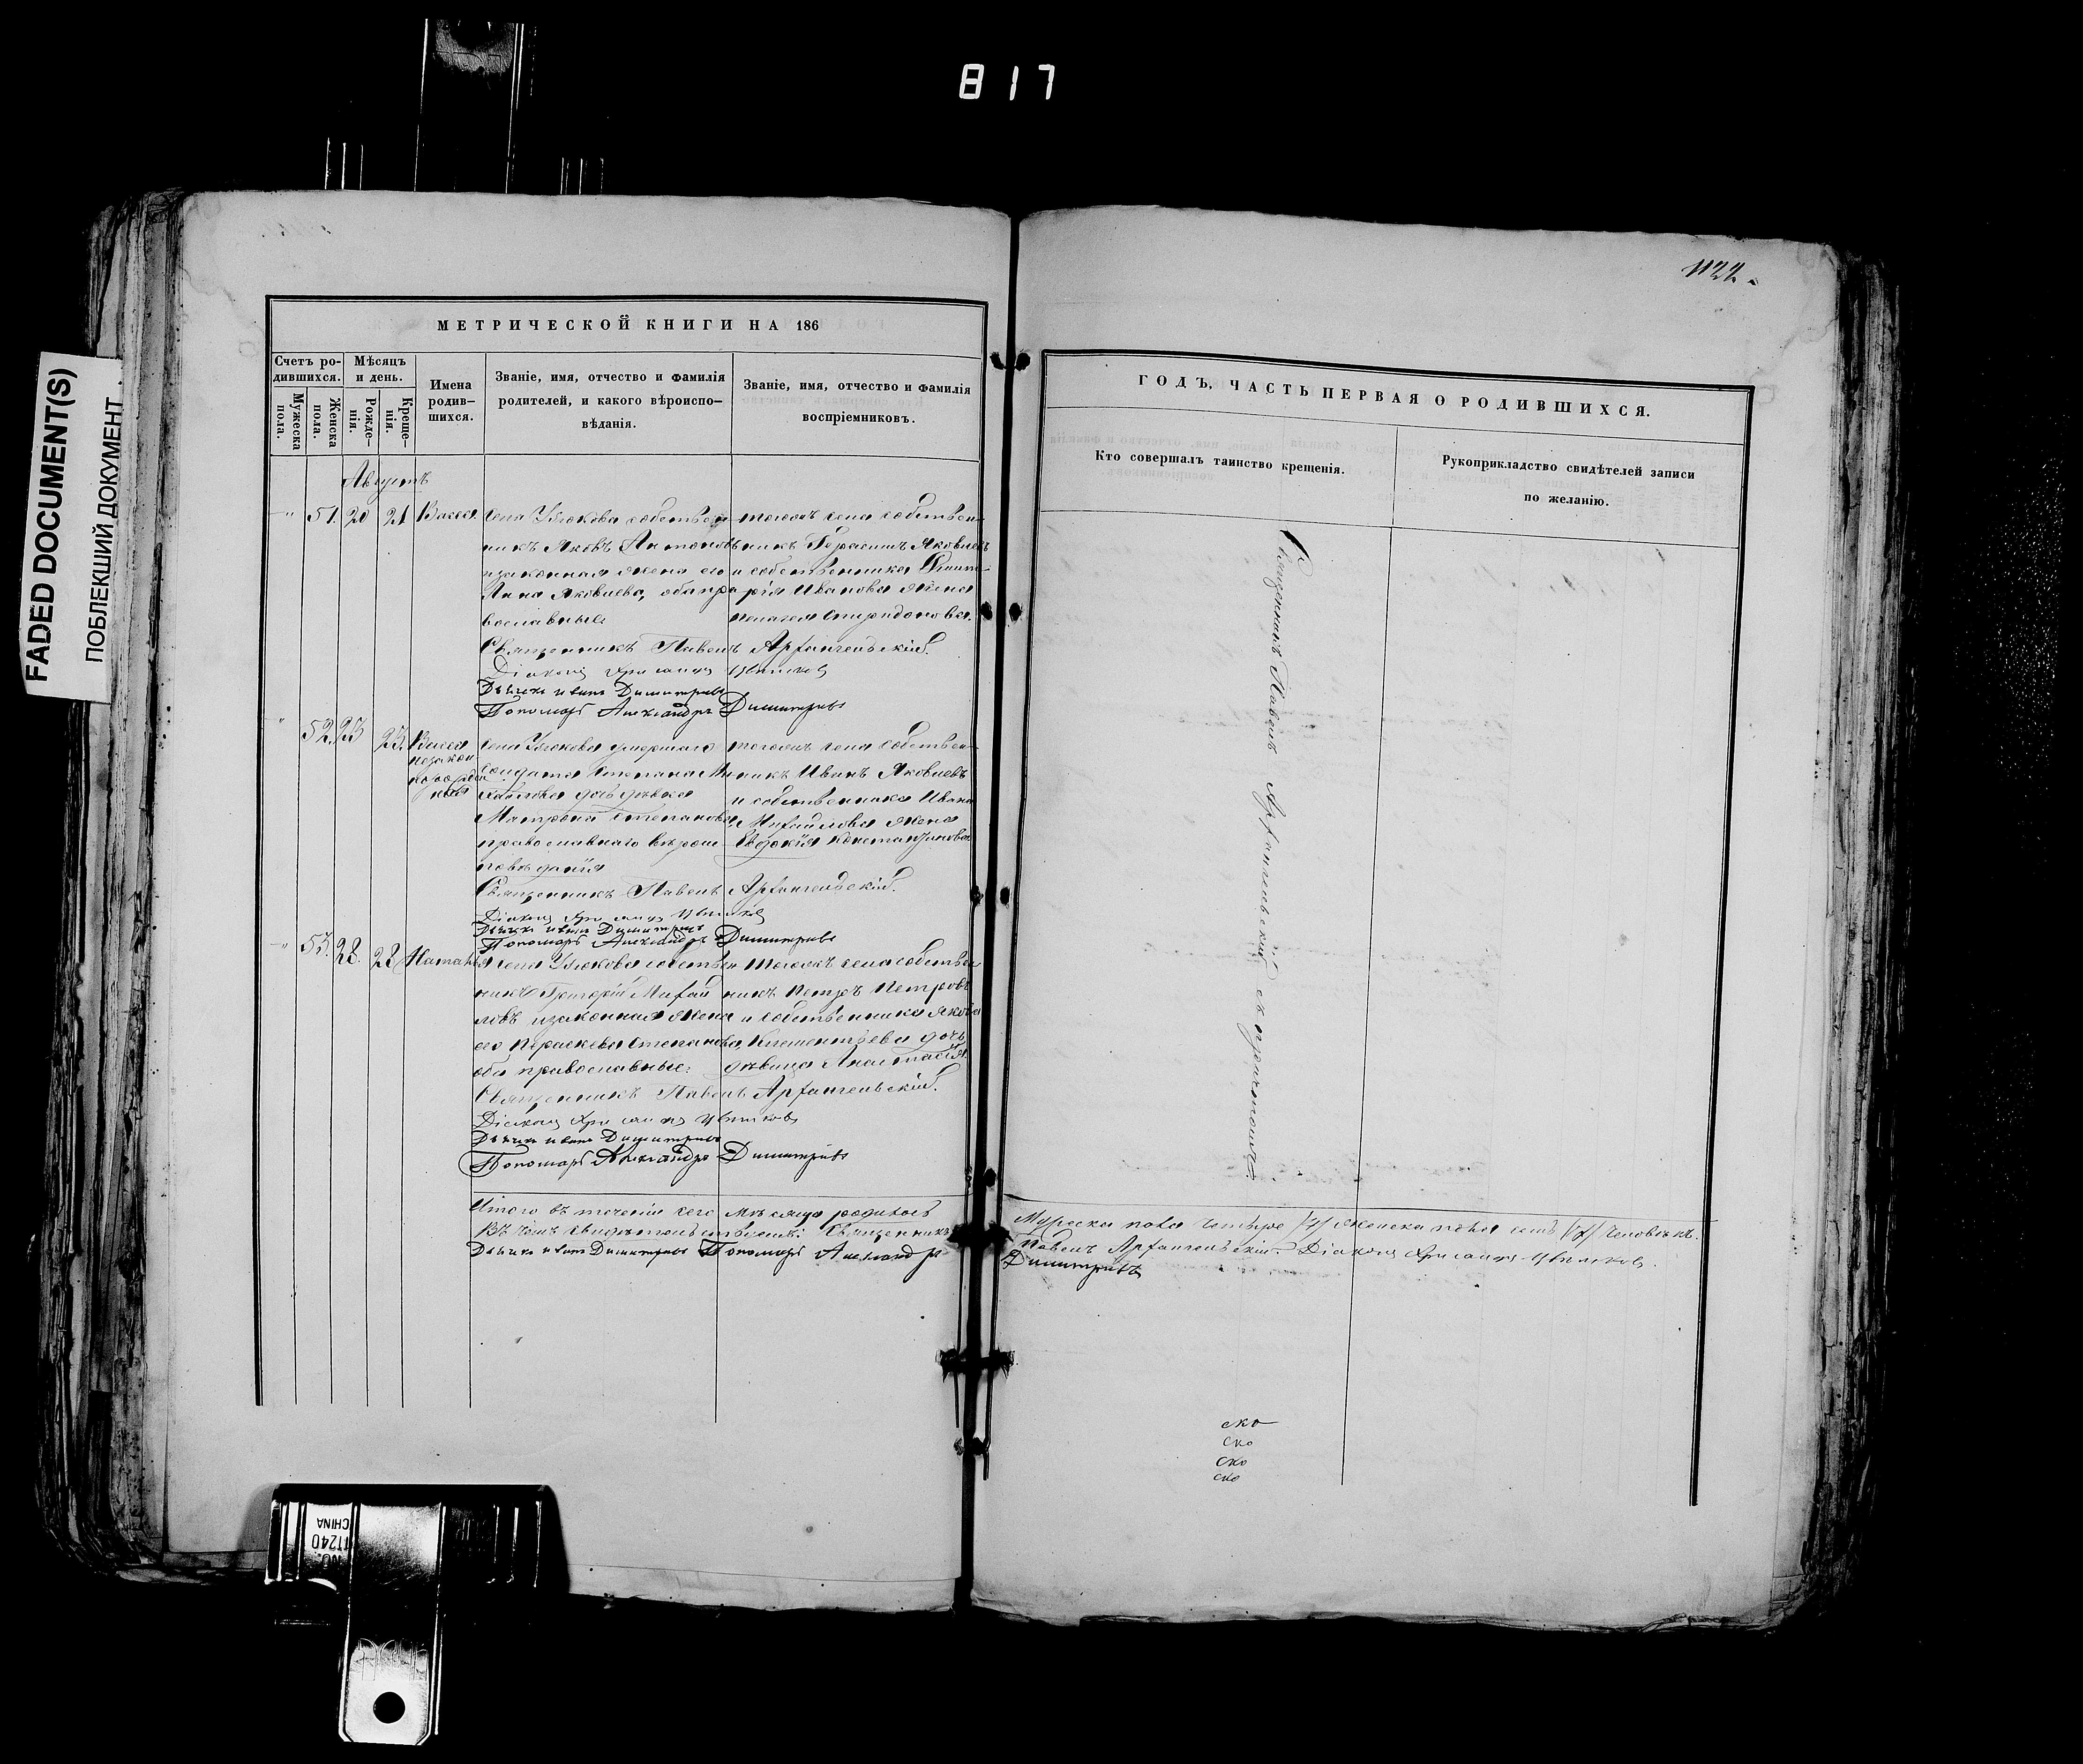 817
FADED DOCUMENT(S)
ПОБЛЕКШИЙ ДОКУМЕНТ
МЕТРИЧЕСКОЙ КНИГИ НА 186
Счетъ ро-
дившихся.
Мужеска
пола.
Женска
пола.
Мѣсяцъ
и день.
Рожде-
нія.
Креще-
нія.
Имена
родив-
шихся.
Званіе, имя, отчество и фамилія
родителей, и какого вѣроиспо-
вѣданія.
Званіе, имя, отчество и фамилія
воспріемниковъ.
Августъ
51. 20 21 Васса
села Ублюкова собствен-
никъ Яковъ Антоновъ
и законная жена его
Анна Яковлева, оба пра
вославные
тогожъ села собствен-
никъ Герасимъ Яковлевъ
и собственника
Иванова жена
Пелагея Спиридонова.
Священникъ Павелъ Архангельскій.
Діаконъ Хрисанфъ Цвѣтковъ
Дьячекъ Иванъ Димитріевъ
Пономарь Александръ Димитріевъ
52. 25 25. Васса
незакон
норожден
ная
села Ублюкова умершаго
солдата Степана Ми
хайлова дочь дѣвка
Матрона Степанова
православнаго вѣроис
повѣданія
тогожъ села собствен-
никъ Иванъ Яковлевъ
и собственника Ивана
Михайлова жена
Евдокія Константинова
Священникъ Павелъ Архангельскій.
Діаконъ Хрисанфъ Цвѣтковъ
Дьячекъ Иванъ Димитріевъ
Пономарь Александръ Димитріевъ
53. 28. 28 Наталья
села Ублюкова собствен
никъ Григорій Михай
ловъ и законная жена
его Параскева Степанова,
оба православные.
тогожъ села собствен
никъ Петръ Петровъ
и собственника Якова
Климентьева дочь
дѣвица Анастасія
Священникъ Павелъ Архангельскій.
Діаконъ Хрисанфъ Цвѣтковъ
Дьячекъ Иванъ Димитріевъ
Пономарь Александръ Димитріевъ
Итого въ теченіи сего мѣсяца родилось
Въ чемъ свидѣтельствуемъ: Священникъ
Дьячекъ Иванъ Димитріевъ Пономарь Александръ
1122.
ГОДЪ, ЧАСТЬ ПЕРВАЯ О РОДИВШИХСЯ.
Кто совершалъ таинство крещенія.
Рукоприкладство свидѣтелей записи
по желанію.
Священникъ Павелъ Архангельскій съ причтомъ
Мужеска пола четыре /4/ женска пола семь /7/ человѣкъ.
Павелъ Архангельскій. Діаконъ Хрисанфъ Цвѣтковъ.
Димитріевъ
ско
ско
ско
ско
NO.
11240
CHINA